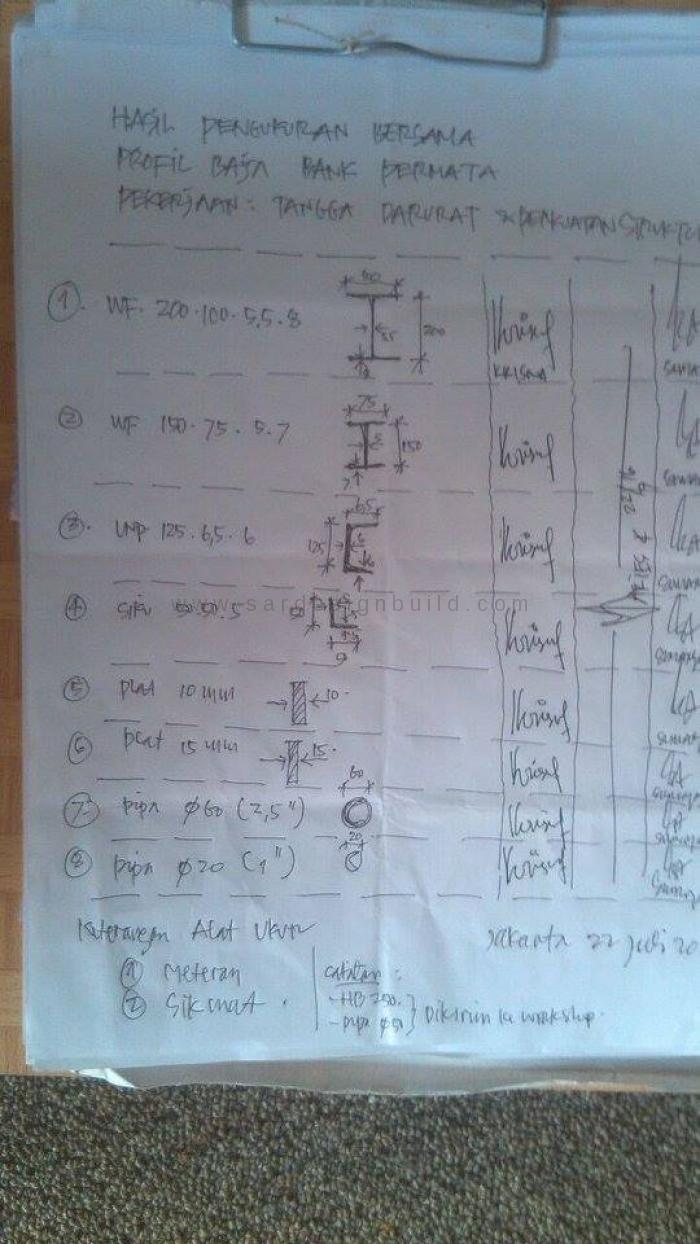 HASIL PENGUKURAN BERSAMA
PROFIL BAJA BANK PERMATA
PEKERJAAN : TANGGA DARURAT & PERKUATAN STRUKTU
1. WF. 200.100.5,5.8
200
KRISNA
2 WF 150.75.5.7
75
150
5
7
3. UNP 125.6,5.6
6,5
125
6
4 Siku 50.50.5
50
www.sardesignbuild.com
5 plat 10 mm
10
6 plat 15 mm
15
60
7. pipa ϕ60 (2,5")
20
8 pipa ϕ20 (1")
Keterangan Alat Ukur
Jakarta 22 Juli 20
1 Meteran
2 Sikmat.
Catatan :
- HB 250.
- pipa ϕ50
Dikirim ke workshop.